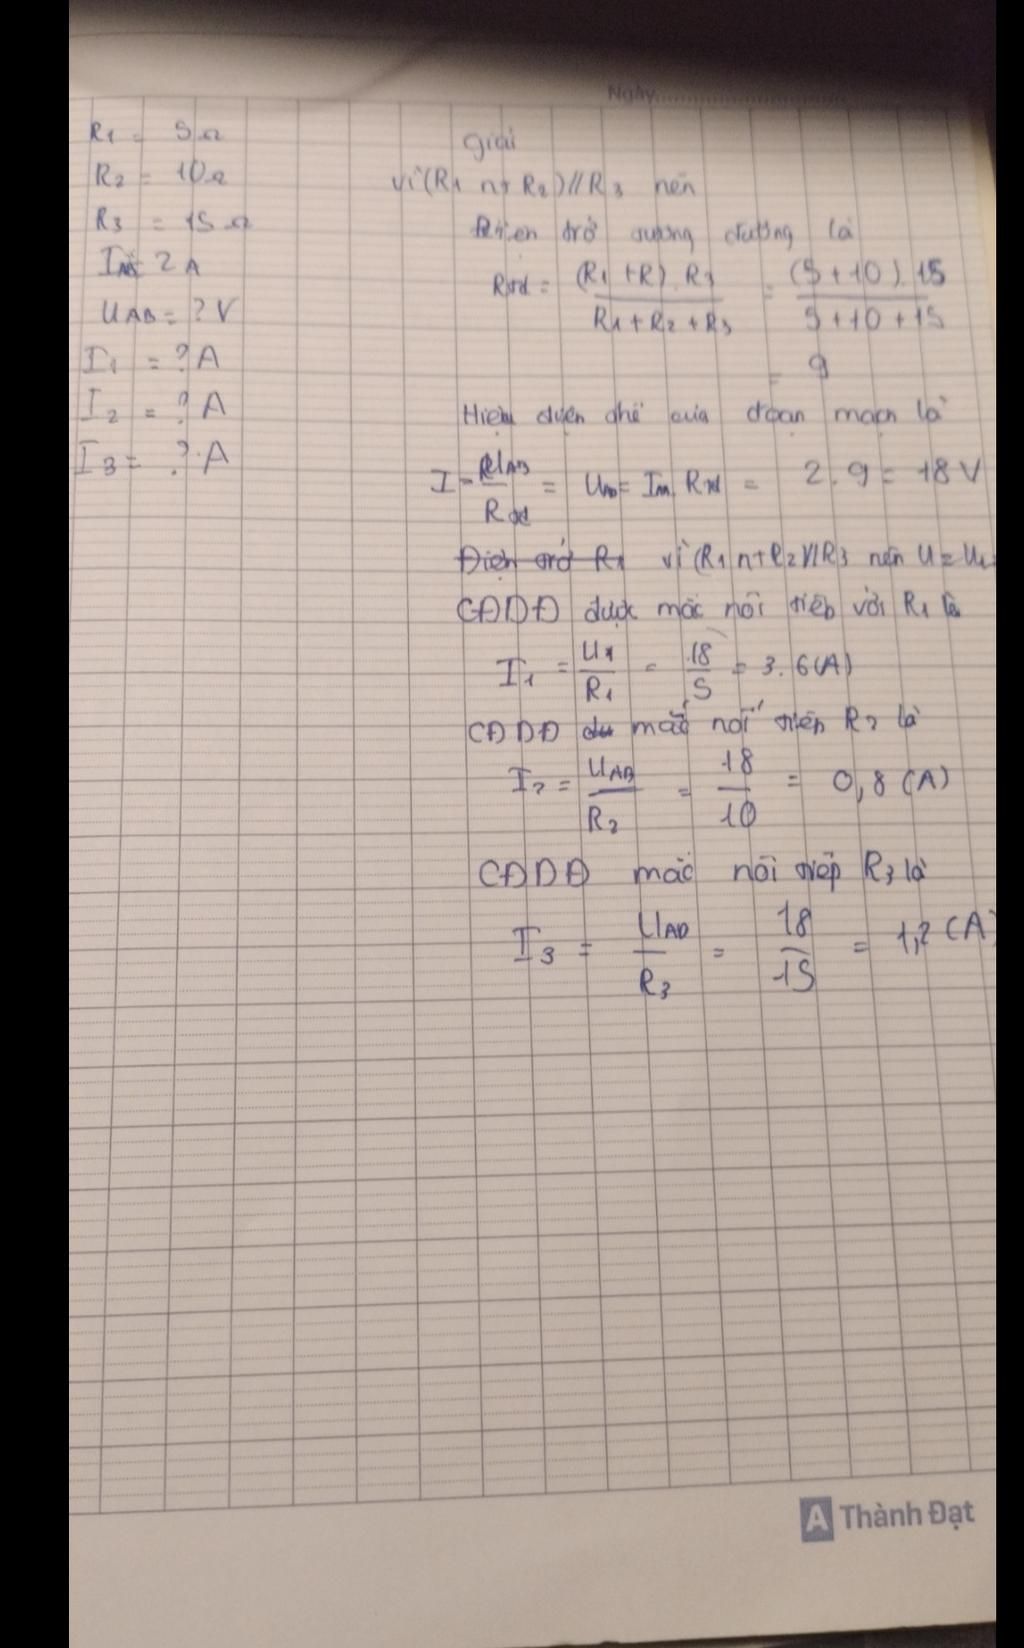 Ngày
R1 = 5Ω
R2 = 10Ω
R3 = 15Ω
Im = 2A
UAB = ? V
I1 = ? A
I2 = ? A
I3 = ? A
giải
vì (R1 nt R2) // R3 nên
Điện trở tương đương là
Rtđ = (R1 + R).R3 / R1 + R2 + R3 = (5 + 10).15 / 5 + 10 + 15
= 9
Hiệu điện thế của đoạn mạch là
I = UAB / Rtđ = UAB = Im. Rtđ = 2.9 = 18V
Điện trở R1 vì (R1 nt R2) // R3 nên U = U1
CĐDĐ được mắc nối tiếp với R1 là
I1 = U1 / R1 = 18 / 5 = 3.6(A)
CĐDĐ mắc nối tiếp R2 là
I2 = UAB / R2 = 18 / 10 = 0,8 (A)
CĐDĐ mắc nối tiếp R3 là
I3 = UAB / R3 = 18 / 15 = 1,2 (A)
A Thành Đạt